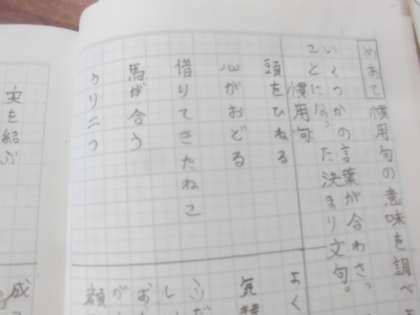 めあて 慣用句の意味を調べ
いくつかの言葉が合わさっ
ことになった決まり文句。
慣用句
頭をひねる
よく
心がおどる
気持
借りてきたねこ
馬が合う
うり二つ
顔
実を結ぶ
成